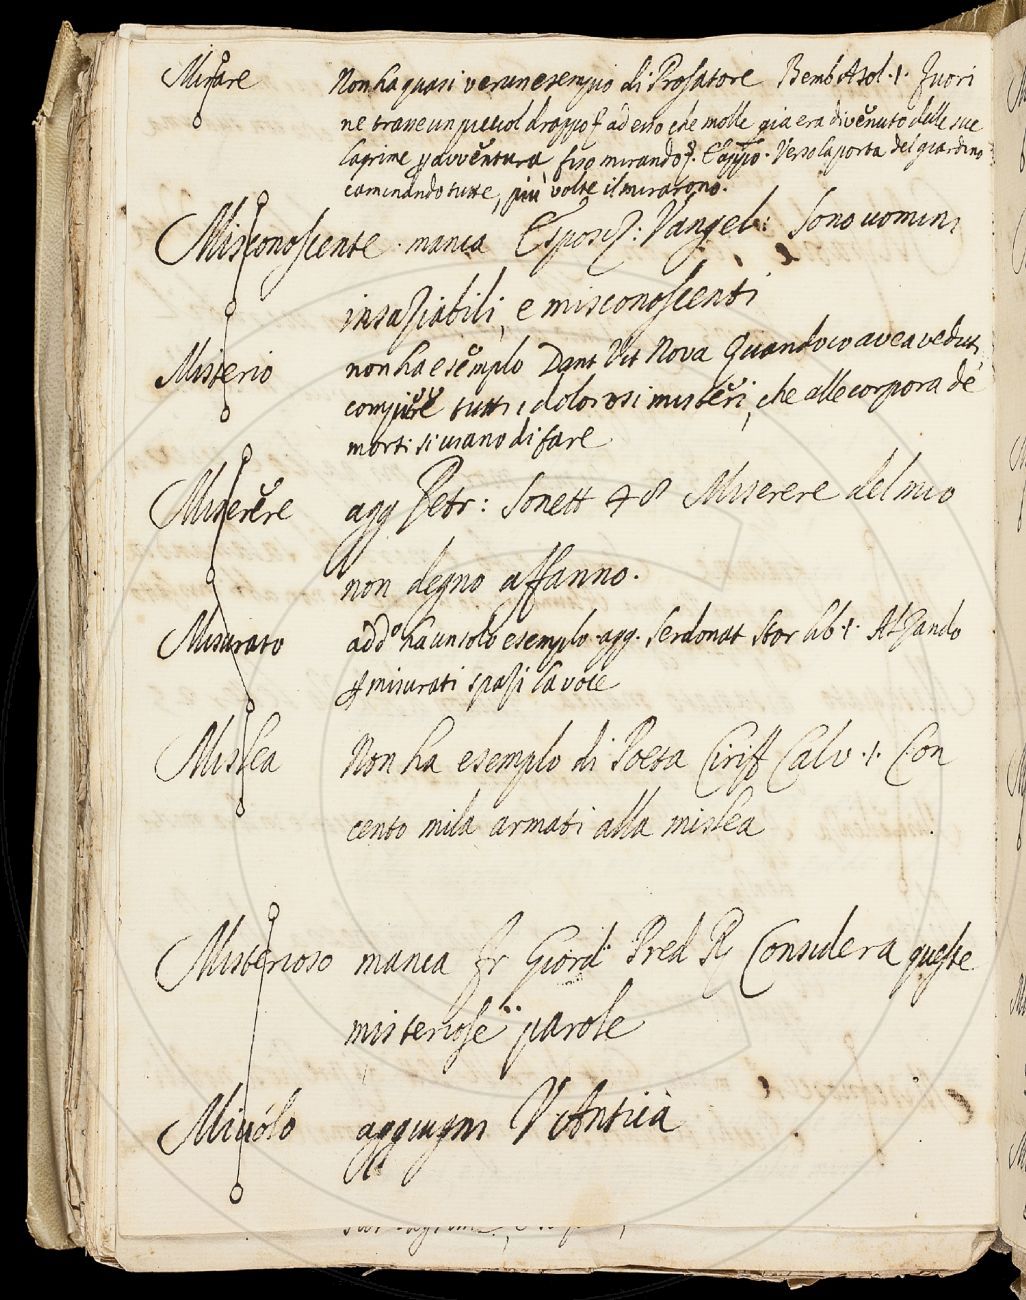 Mirare Non ha quasi verun esempio di Prosatore Bemb Asol. 1. Fuori
ne trasse un picciol drappo ad esso che molle già era divenuto delle sue
lagrime p avventura fiso mirando Verso la porta del giardino
caminando tutte, più volte il mirarono.
Misconoscente manca Esposiz: Vangel: Sono uomini
insaziabili, e misconoscenti
Misterio non ha esemplo Dant Vit Nova Quando io avea veduti
compiere tutti i dolorosi misteri, che alle corpora de
morti si usano di fare
Miserere agg Petr: Sonett 48 Miserere del mio
non degno affanno.
Misurato add.º ha un solo esemplo agg. Serdonat Stor lib. 1. Alzando
p misurati spazi la voce
Mislea Non ha esemplo di Poeta Ciriff Calv. 1. Con
cento mila armati alla mislea
Misterioso manca Fr Giord Pred R Considera queste
misteriose parole
Miuolo aggiugni V Antica